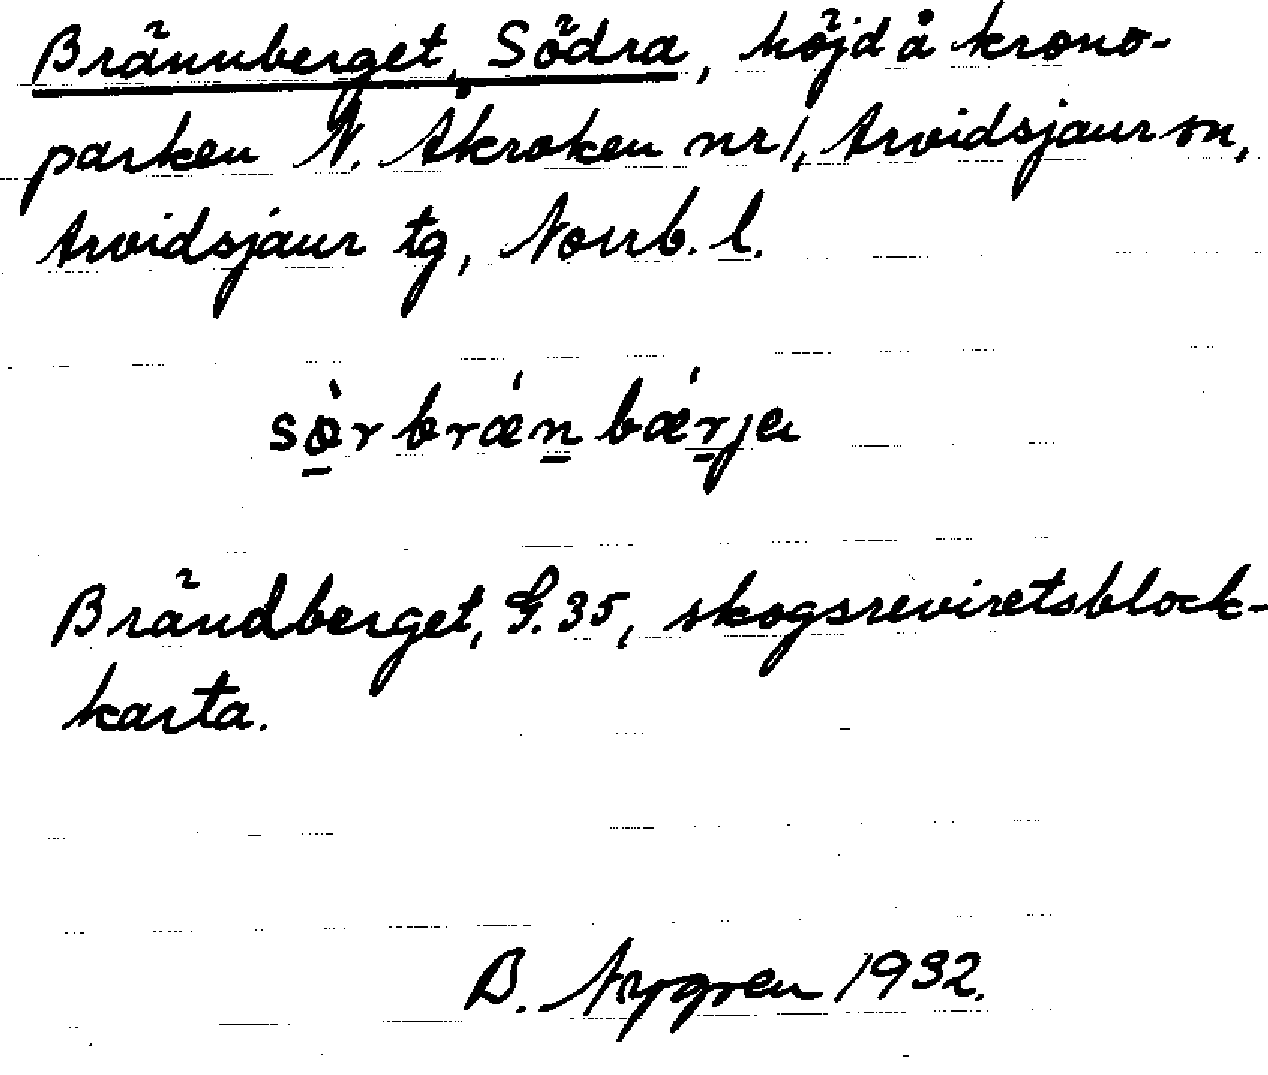 Brännberget, Södra, höjd å krono-
parken N. Åkroken nr 1, Arvidsjaur sn,
Arvidsjaur tg, Norrb. l.
sò̱r brǽn̲ bǽr̲ja
Brändberget, S. 35, skogsreviretsblock-
karta.
B. Nygren 1932.